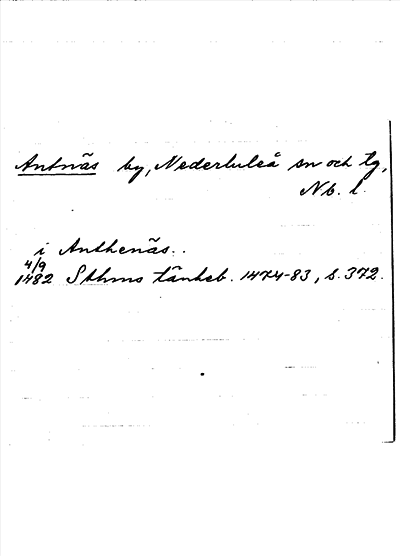 Antnäs by, Nederluleå sn och tg,
Nb. l.
i Anthenäs.
4/9
1482 Sthms tänkeb. 1474-83, s. 372.